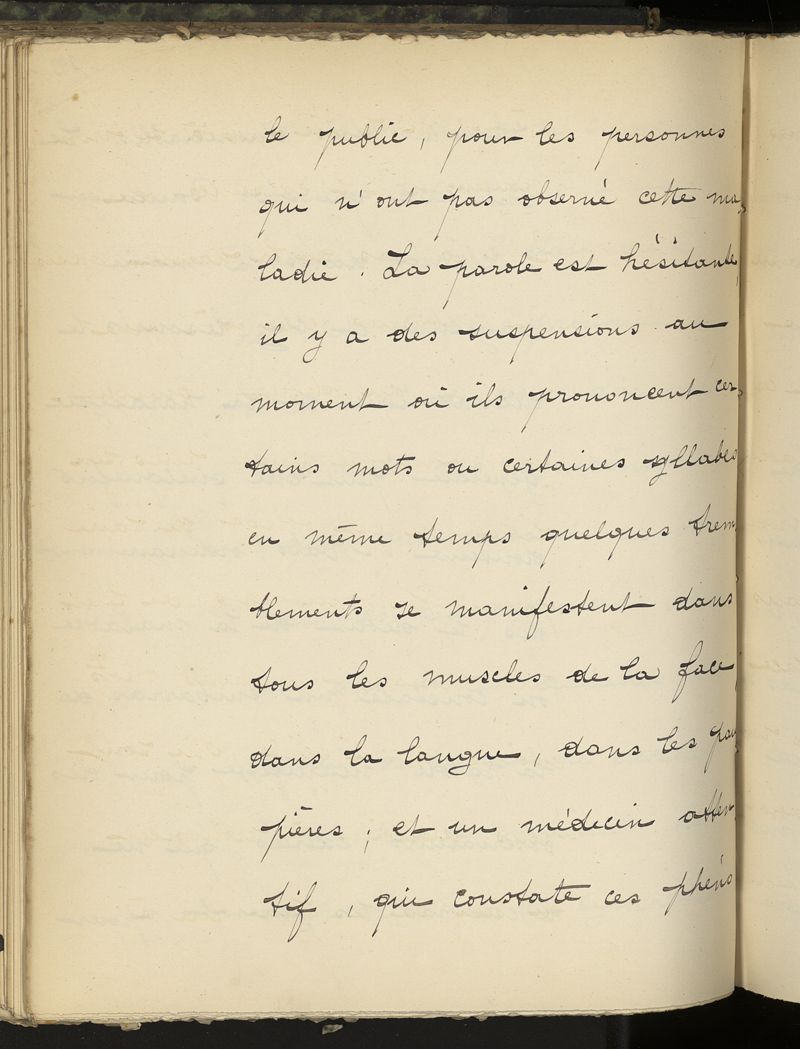 le public, pour les personnes
qui n'ont pas observé cette ma-
ladie. La parole est hésitante,
il y a des suspensions au
moment où ils prononcent cer-
tains mots ou certaines syllabes
en même temps quelques trem-
blements se manifestent dans
tous les muscles de la face,
dans la langue, dans les pau-
pières ; et un médecin atten-
tif, qui constate ces phéno